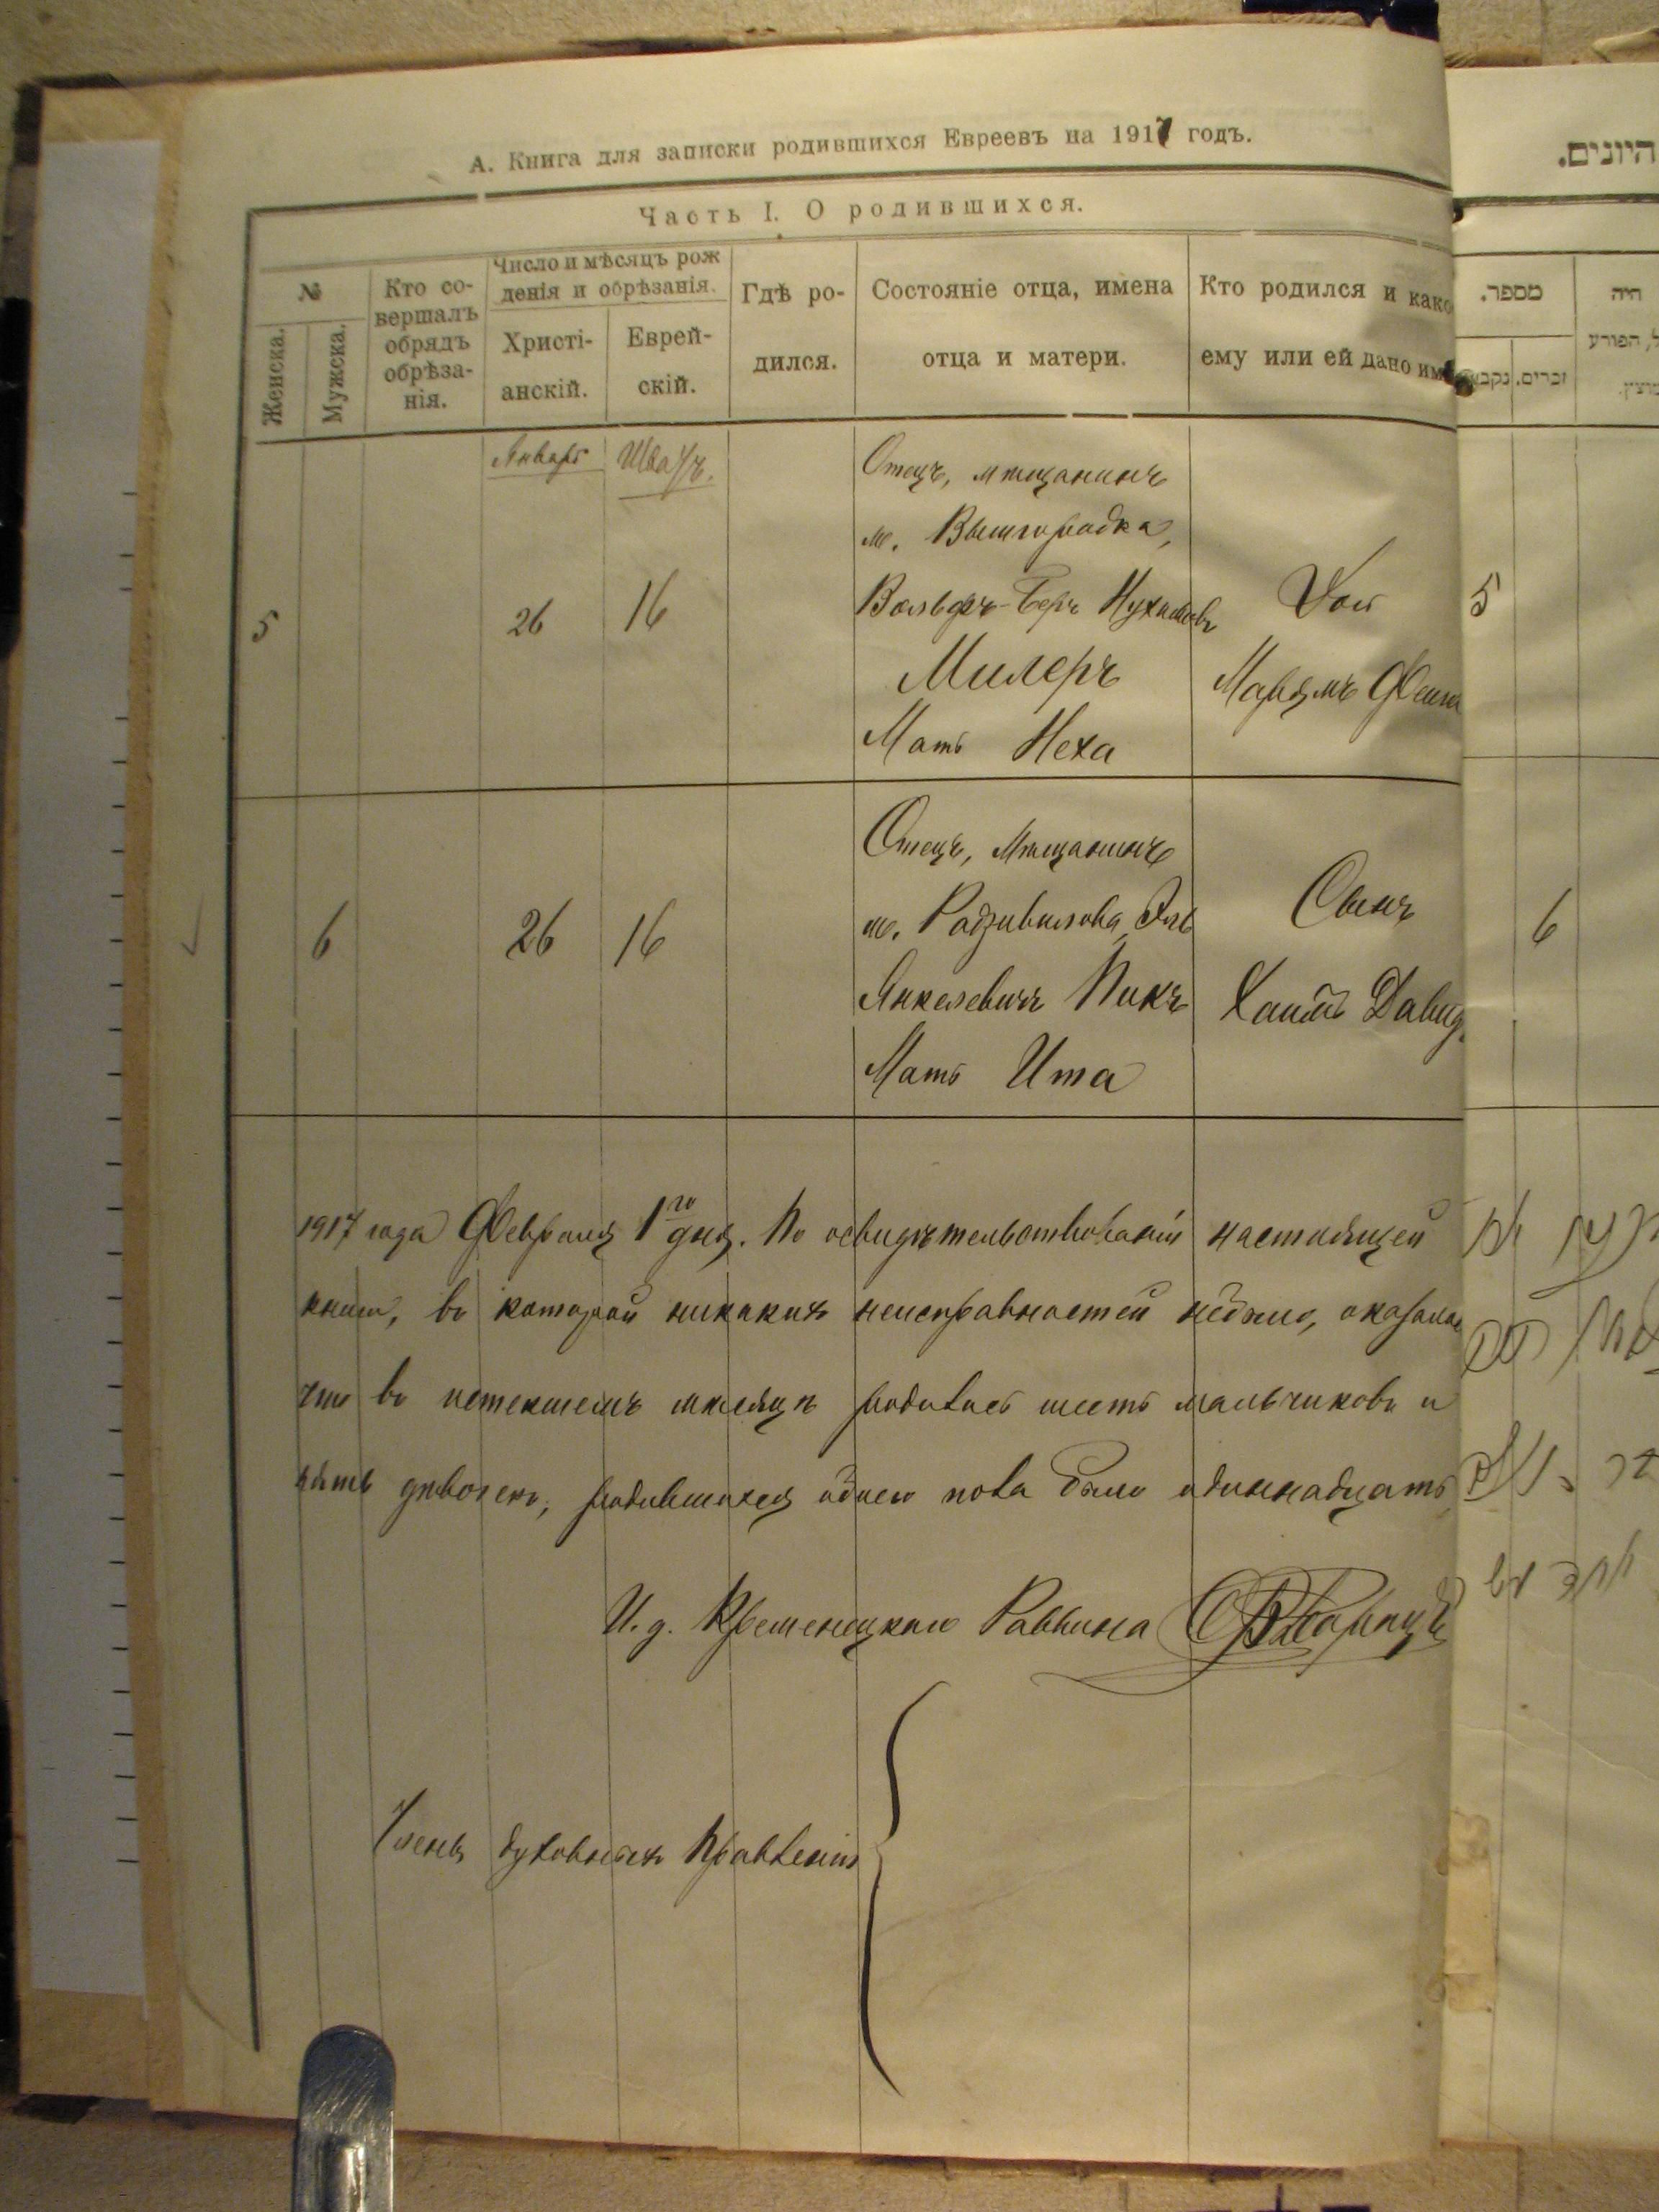 А. Книга для записки родившихся Евреевъ на 1917 годъ.
היונים.
Часть I. О родившихся.
№
Женска.
Мужска.
Кто со-
вершалъ
обрядъ
обрѣза-
нія.
Число и мѣсяцъ рож
денія и обрѣзанія.
Христі-
анскій.
Еврей-
скій.
Гдѣ ро-
дился.
Состояніе отца, имена
отца и матери.
Кто родился и како
ему или ей дано им
מספר.
זכרים.
נקב
היה
ל, הפורע
Январь
Шватъ.
Отецъ, мѣщанинъ
м. Вышгородка,
5
26
16
Вольфъ-Беръ Нухимовъ
Дочь
5
Милеръ
Марьямъ Фейга
Мать Неха
Отецъ, Мѣщанинъ
6
26
16
м. Радзивилова, Эль
Сынъ
6
Янкелевичъ Пикъ
Хаимъ Давид
Мать Ита
1917 года Февраля 1го дня. По освидѣтельствованіи настоящей
книги, въ которой никакихъ неисправностей небыло, оказалос
что въ истекшемъ мѣсяцѣ родилось шесть мальчиковъ и
пять дѣвочекъ, родившихся обоего пола было одиннадцать
И. д. Кременецкаго Раввина
Члены духовныхъ Правленій